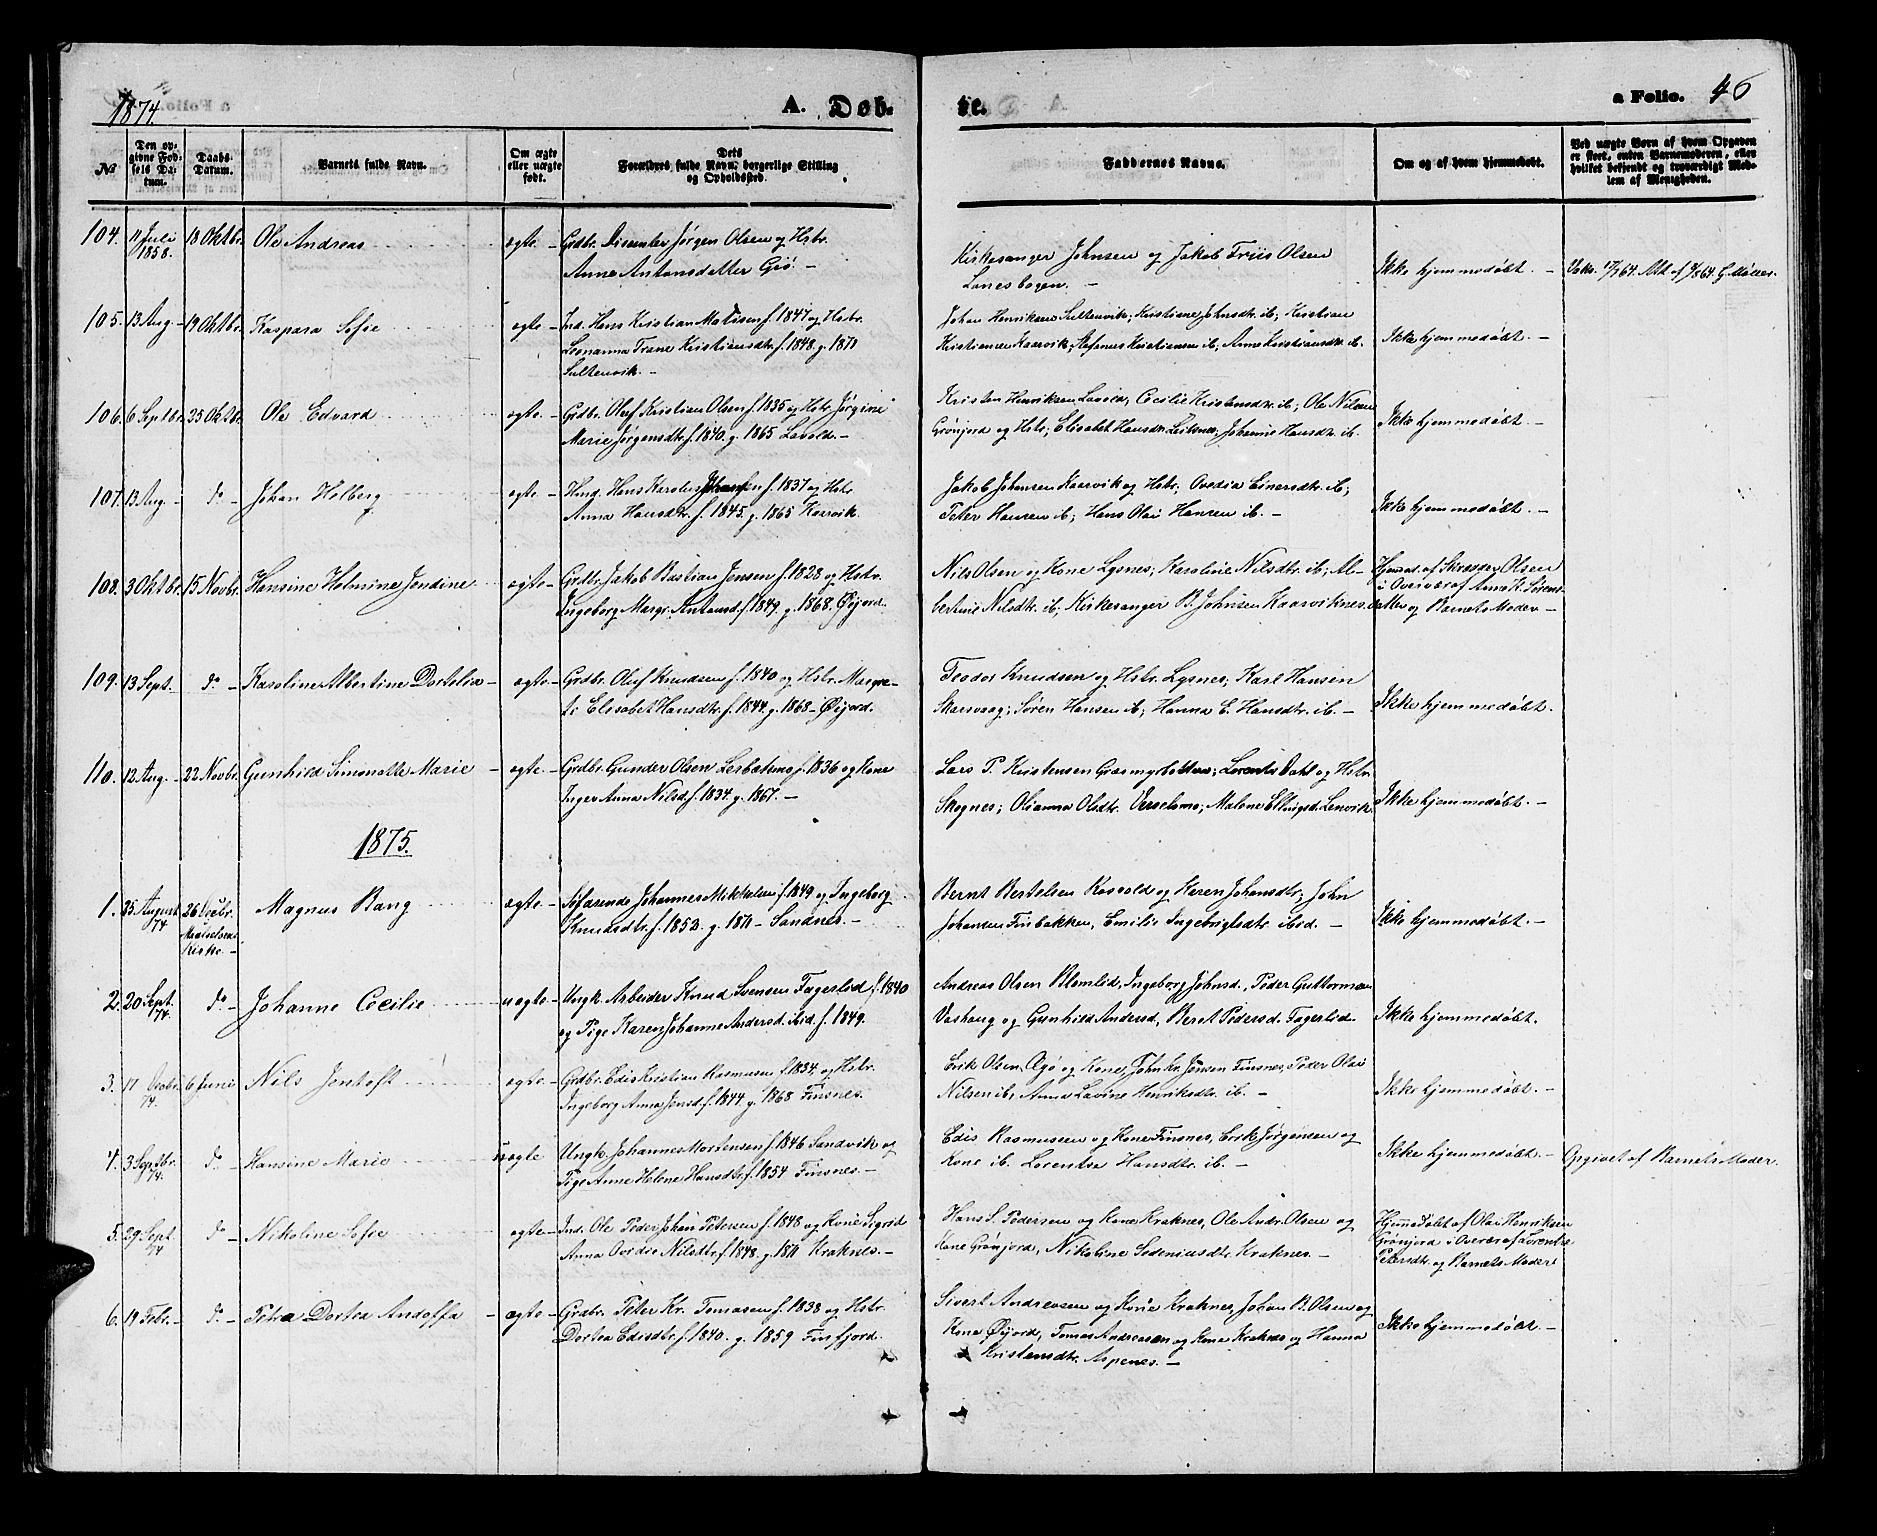 1874.
A. Døb-
te.
a Folio. 46
№
Den op-
givne Fød-
sels Da-
tum.
Daabs-
Datum.
Barnets fulde Navn.
Om ægte
eller uægte
født.
Dets
Forældres fulde Navn, borgerlige Stilling
og Opholdssted.
Faddernes Navne.
Om og af hvem hjemmedøbt.
Ved uægte Børn af hvem Opgaven
er skeet, enten Barnemoderen, eller
hvilket bekjendt og troværdigt Med-
lem af Menigheden.
104. 11 Juli 1858. 18 Oktbr. Ole Andreas ægte Grdbr. Dissenter Jørgen Olsen og Hstr.
Anne Antonsdatter Giö. –
Kirkesanger Johnsen og Jakob Friis Olsen
Lanesbogen. –
Ikke hjemmedøbt. –
105. 13 Aug. 19 Oktbr. Kaspara Sofie ægte Ind. Hans Kristian Matisen f. 1847 og Hstr.
Leonanna Trane Kristiansdtr. f. 1848. g. 1871
Sultenvik. –
Johan Henriksen Sultenvik; Kristiane Johnsdtr. ib; Kristian
Kristiansen Kaarvik; Stefanus Kristiansen ib; Anne Kristiansdtr. ib.
Ikke hjemmedøbt. –
106. 6 Septbr. 25 Oktbr. Ole Edvard ægte Grdbr. Oluf Kristian Olsen f. 1835 og Hstr. Jørgine
Marie Jørgensdtr. f. 1840. g. 1865 Lavold. –
Kristen Henriksen; Cecilie Kristensdtr. ib; Ole Nilsen
Grønjord og Hstr; Elisabet Hansdtr. Leiknes; Johanne Hansdtr. ib.
Ikke hjemmedøbt. –
107. 13 Aug. do Johan Holberg ægte Hmd. Hans Karolus Johansen f. 1837 og Hstr
Anna Hansdtr. f. 1845. g. 1865 Kaarvik.
Jakob Johansen Kaarvik og Hstr. Ovedia Einersdtr. ib;
Peter Hansen ib; Hans Olai Hansen ib. –
Ikke hjemmedøbt. –
108. 3 Oktbr. 15 Novbr. Hansine Holmine Jendine ægte Grdbr. Jakob Bastian Jensen f. 1828 og Hstr.
Ingeborg Margr. Antonsd. f. 1849. g. 1868. Øijord.
Nils Olsen og Kone Lysnes; Karoline Nilsdtr. ib; Al-
bertine Nilsdtr. ib; Kirkesanger B. Johnsen Kaarviknes.
Hjemd. af Skræder Olsen
i Overvær af Anna K. Sørens-
datter og Barnets Moder –
109. 13 Sept. do Karoline Albertine Dortelia ægte Grdbr. Oluf Knudsen f. 1840 og Hstr. Margre-
te Elisabet Hansdtr. f. 1844. g. 1868 – Øijord.
Teodor Knudsen og Hstr. Lysnes; Karl Hansen
Skarsvaag; Søren Hansen ib; Hanna E. Hansdtr. ib. –
Ikke hjemmedøbt.
110. 12 Aug. 22 Novbr. Gunhild Simonette Marie ægte Grdbr. Gunder Olsen f. 1836 og Kone
Inger Anna Nilsd. f. 1834. g. 1867. –
Lars P. Kristensen Græsmyrbotten; Lorents Dahl og Hstr.
Skognes; Olianna Olsdtr.; Malene Ellingsd. Lenvik.
Ikke hjemmedøbt. –
1875.
1. 25 August 74. 26 Decbr. Maalselvens Kirke. – Magnus Bang ægte Søfarende Johannes Mikkelsen f. 1849 og Ingeborg
Knutsdtr. f. 1852. g. 1871 – Sandnes. –
Bernt Bertelsen Rosvold og Karen Johansdtr; John
Johansen Finbakken, Emilie Ingebrigtsdtr. ibid. –
Ikke hjemmedøbt. –
2. 20 Sept. 74. do Johanne Cecilie uægte Ungk. Arbeider Knud Svensen Fagerlid f. 1840
og Pige Karen Johanne Andersd. ibid. f. 1849.
Andreas Olsen Blomlid, Ingeborg Johnsd., Peder Guttormsen
Vashaug og Gunhild Andersd, Beret Pedersd. Fagerlid.
Ikke hjemmedøbt.
3. 17 Decbr. 74. 6 Juni Nils Jentoft ægte Grdbr. Edis Kristian Rasmusen f. 1834 og Hstr.
Ingeborg Anna Jensd. f. 1844. g. 1868 Finsnes.
Erik Olsen og Kone, John Kr. Jensen Finsnes, Peder Olai
Nilsen ib, Anna Lavine Henriksdtr. ib. –
Ikke hjemmedøbt. –
4. 3 Septbr. 74. do Hansine Marie uægte Ungk. Johannes Mortensen f. 1846 Sandvik og
Pige Anne Helene Hansdtr. f. 1854 Finsnes. –
Edis Rasmussen og Kone Finsnes, Erik Jørgensen og
Kone ib. Lorentse Hansdtr. ib. –
Ikke hjemmedøbt. –
Opgivet af Barnets Moder.
5. 29 Sept 74 do Nikoline Sofie ægte Ind. Ole Peder Johan Petersen f. 1848 og Kone Sigrid
Anna Ovedie Nilsdtr. f. 1848. g. 1871 Kraknes. –
Hans S. Pedersen og Kone Kraknes, Ole Andr. Olsen og
Kone Grønjord, Nikoline Sedeniusdtr. Kraknes. –
Hjemmedøbt af Olai Henriksen
Grønjord i Overvær af Lorentse
Petersdtr. og Barnets Moder
6. 19 Febr. do Petra Dortea Andoffa ægte Grdbr. Peter Kr. Tomasen f. 1838 og Hstr.
Dortea Edisdtr. f. 1840. g. 1859 Finfjord.
Sivert Andreasen og Kone Kraknes, Johan B. Olsen og
Kone Øijord, Tomas Andreasen og Kone Kraknes og Hanna
Kristensdtr. Aspenes. –
Ikke hjemmedøbt. –